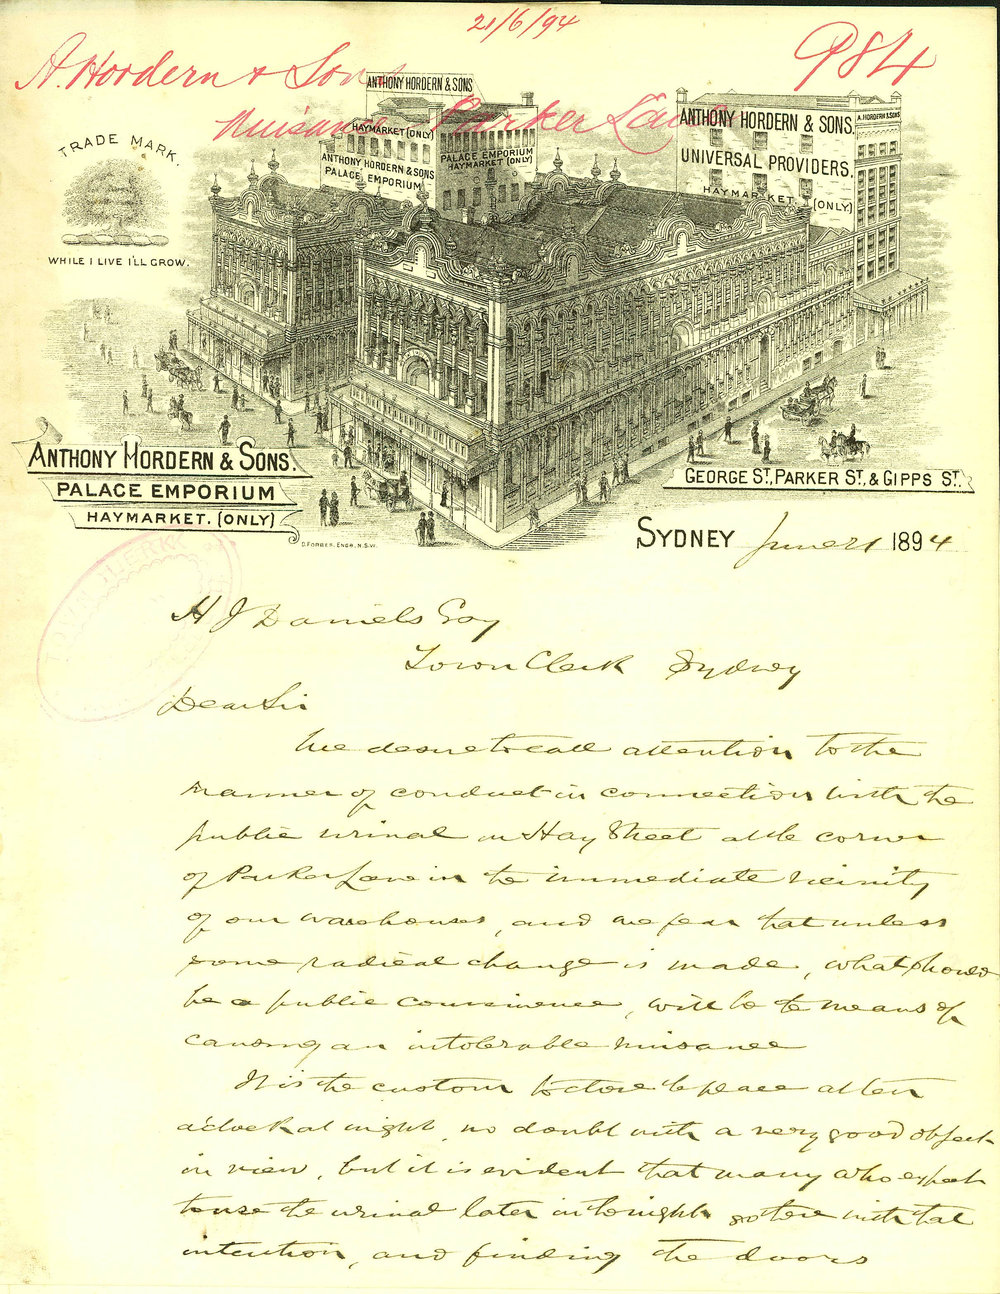 21/6/94
A. Hordern & Sons
984
Nuisance Parker Lane
TRADE MARK.
WHILE I LIVE I'LL GROW.
ANTHONY HORDERN & SONS
HAYMARKET (ONLY)
ANTHONY HORDERN & SONS
PALACE EMPORIUM
PALACE EMPORIUM
HAYMARKET (ONLY)
ANTHONY HORDERN & SONS.
UNIVERSAL PROVIDERS.
HAYMARKET. (ONLY)
A. HORDERN & SONS
ANTHONY HORDERN & SONS.
PALACE EMPORIUM
HAYMARKET. (ONLY)
GEORGE ST, PARKER ST, & GIPPS ST.
D. FORBES, ENGR. N.S.W.
SYDNEY June 21 1894
TOWN CLERK
H J Daniels Esq
Town Clerk Sydney
Dear Sir
We desire to call attention to the
manner of conduct in connection with the
public urinal in Hay Street at the corner
of Parker Lane in the immediate vicinity
of our warehouses, and we fear that unless
some radical change is made, what should
be a public convenience, will be the means of
causing an intolerable nuisance
It is the custom to close the place at ten
o'clock at night, no doubt with a very good object
in view, but it is evident that many who expect
to use the urinal later in the night go there with that
intention, and finding the doors